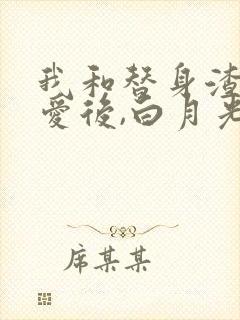 我和替身渣
愛後,白月光
席某某